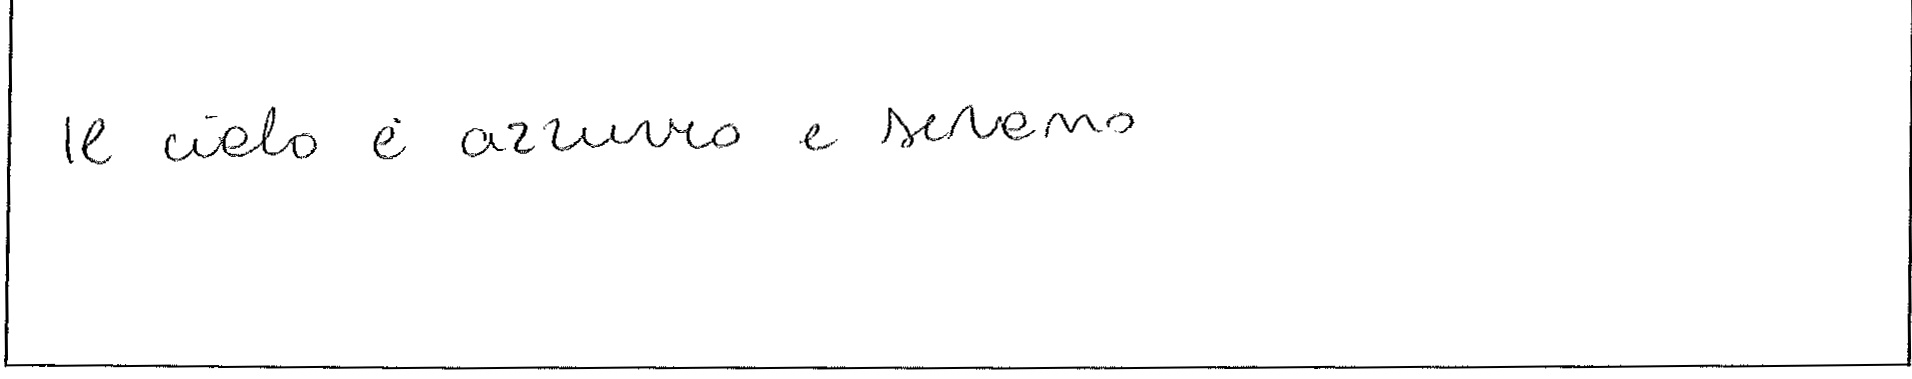 Il cielo è azzurro e sereno